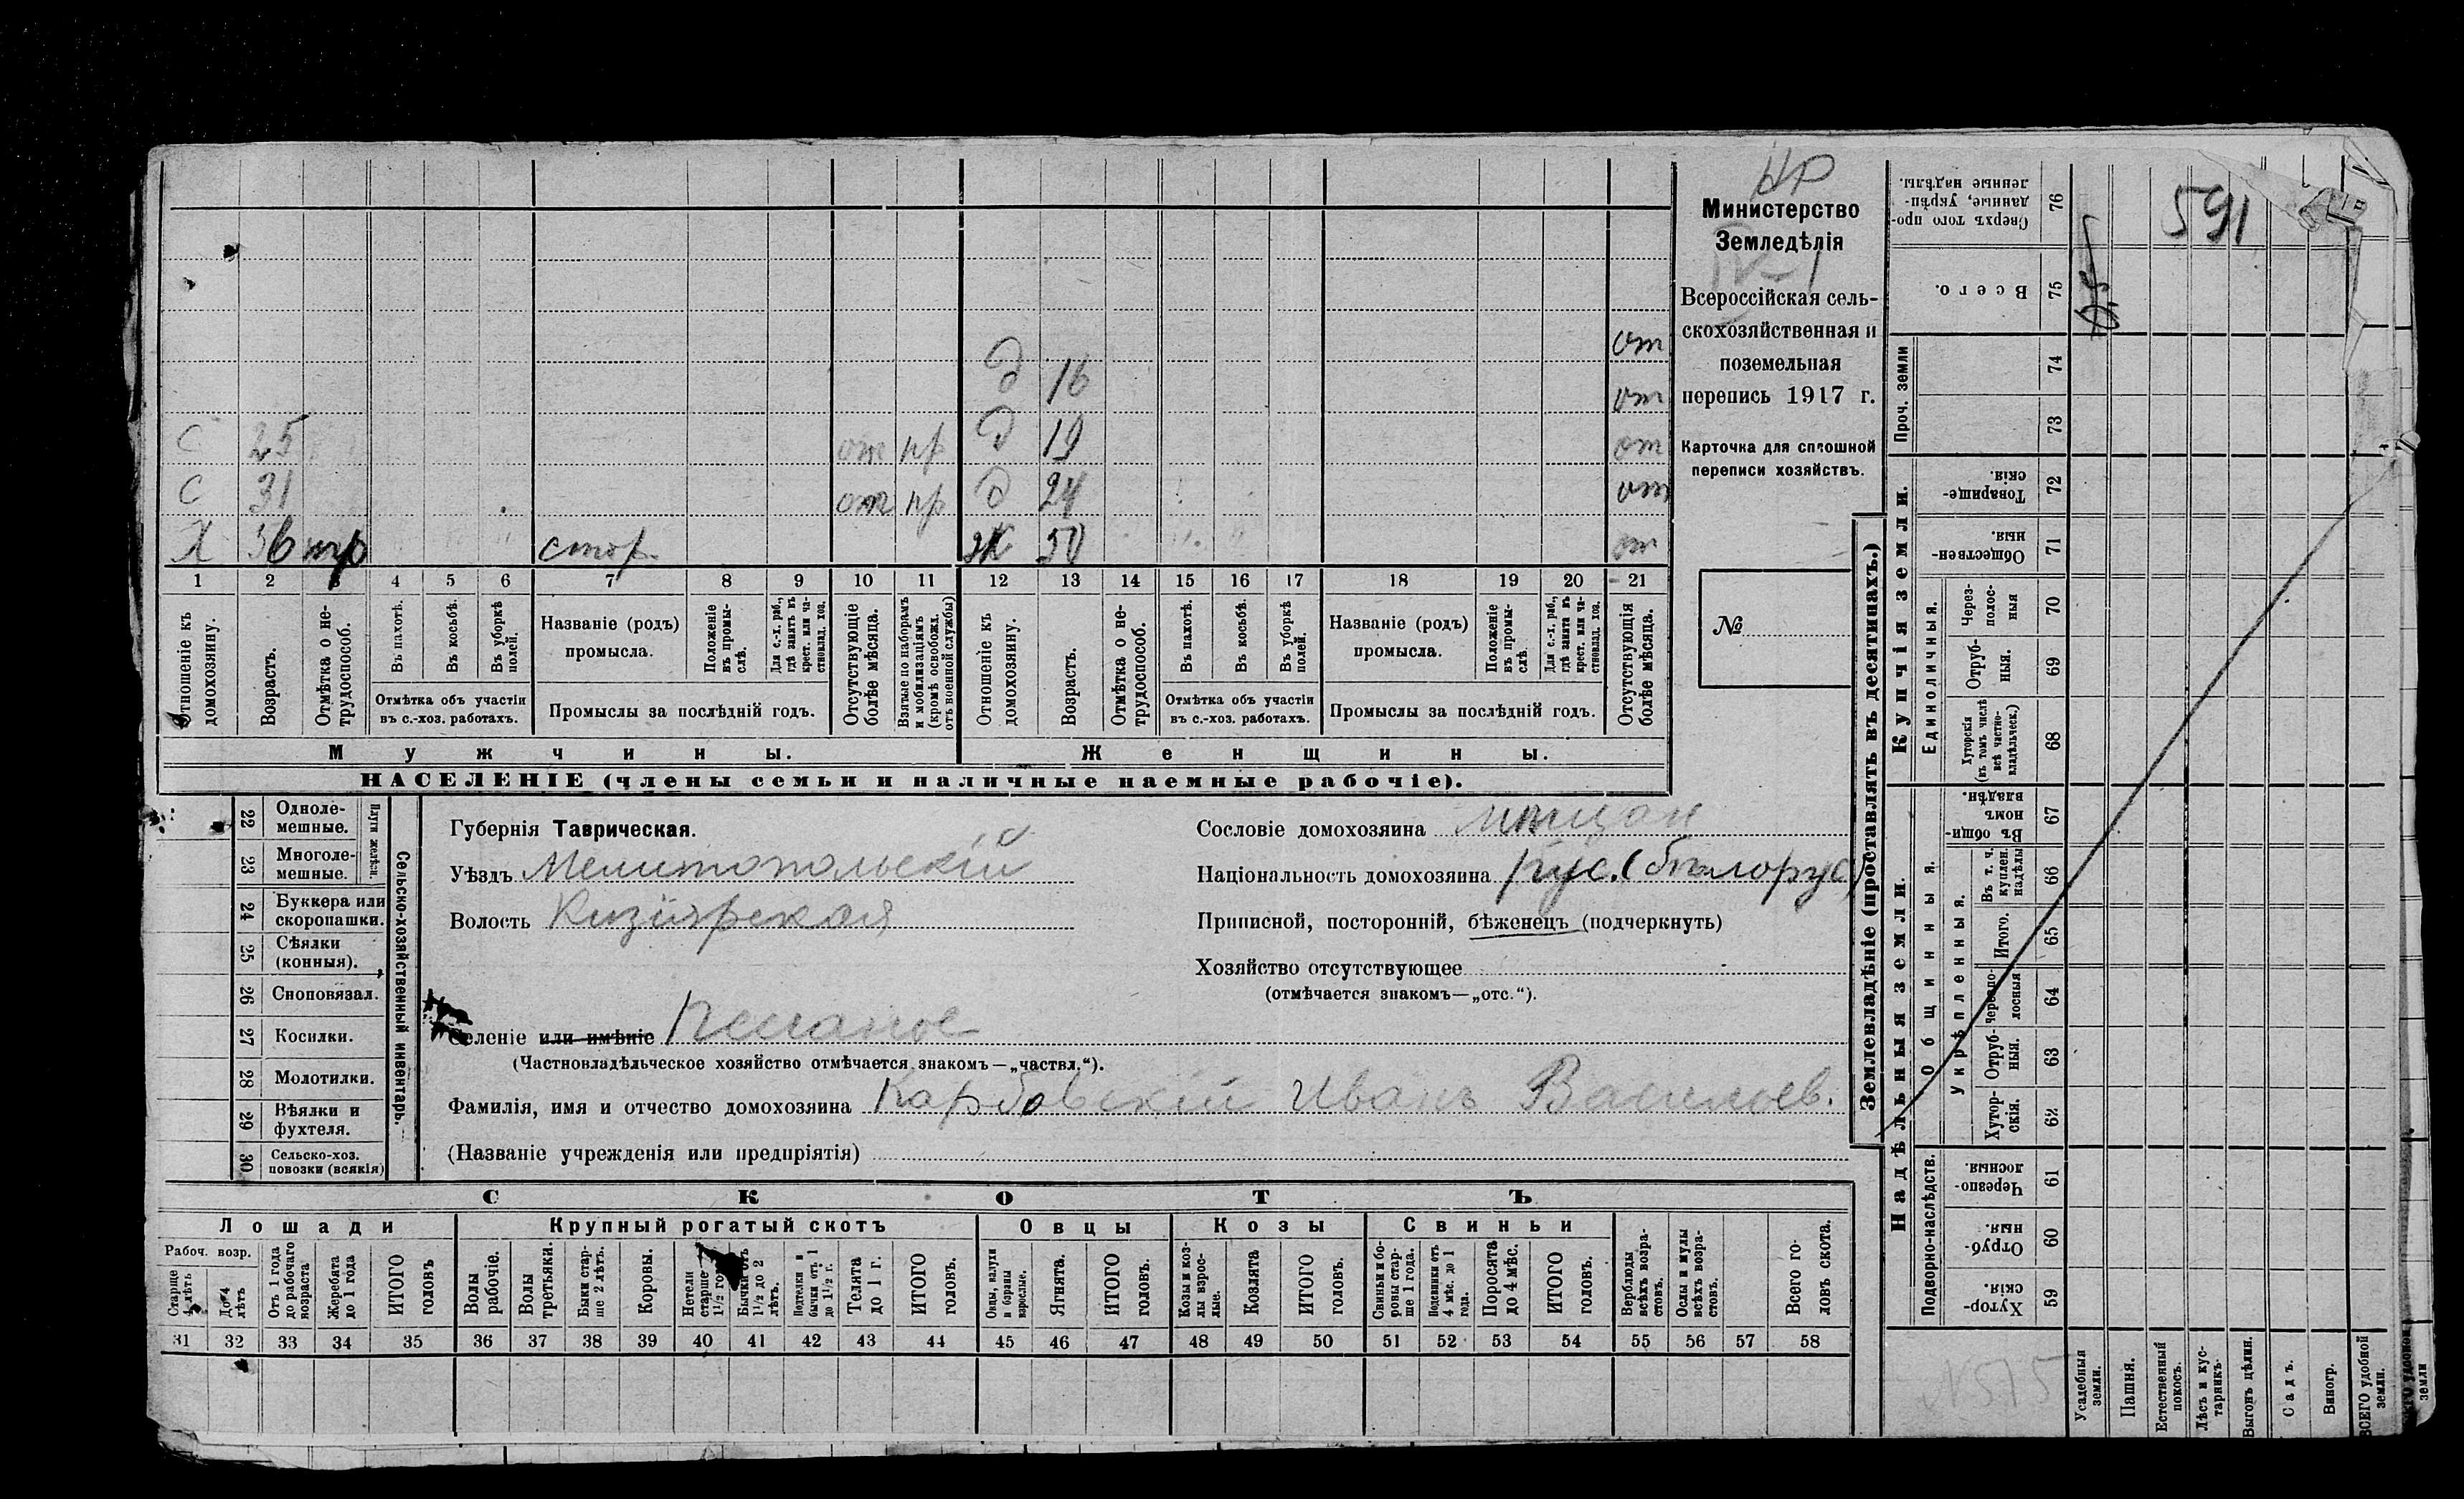 НР
Министерство
Земледѣлія
IV–1
Всероссійская сель-
скохозяйственная и
поземельная
перепись 1917 г.
Карточка для сплошной
переписи хозяйствъ.
№
591
от
д 16 от
С 25 от пр д 19 от
С 31 от пр д 24 от
Х 56 стор ж 50 от
1 2 3 4 5 6 7 8 9 10 11 12 13 14 15 16 17 18 19 20 21
Отношеніе къ домохозяину.
Возрастъ.
Отмѣтка о не-трудоспособ.
Въ пахотѣ.
Въ косьбѣ.
Въ уборкѣ полей.
Отмѣтка объ участіи
въ с.-хоз. работахъ.
Названіе (родъ)
промысла.
Положеніе въ промы-слѣ.
Для с.-х. раб., гдѣ занятъ въ крест. или ча-стновлад. хоз.
Промыслы за послѣдній годъ.
Отсутствующіе болѣе мѣсяца.
Взятые по наборамъ и мобилизаціямъ (кромѣ освобожд. отъ военной службы)
Отношеніе къ домохозяину.
Возрастъ.
Отмѣтка о не-трудоспособ.
Въ пахотѣ.
Въ косьбѣ.
Въ уборкѣ полей.
Отмѣтка объ участіи
въ с.-хоз. работахъ.
Названіе (родъ)
промысла.
Положеніе въ промы-слѣ.
Для с.-х. раб., гдѣ занята въ крест. или ча-стновлад. хоз.
Промыслы за послѣдній годъ.
Отсутствующія болѣе мѣсяца.
Мужчины. Женщины.
НАСЕЛЕНІЕ (члены семьи и наличные наемные рабочіе).
Губернія Таврическая.
Уѣздъ Мелитопольскій
Волость Кизіярская
Селеніе или имѣніе Песчаное
(Частновладѣльческое хозяйство отмѣчается знакомъ—„частвл.“).
Фамилія, имя и отчество домохозяина Карбовскій Иванъ Васильев.
(Названіе учрежденія или предпріятія)
Сословіе домохозяина мѣщан
Національность домохозяина рус. (бѣлорус)
Приписной, посторонній, бѣженецъ (подчеркнуть)
Хозяйство отсутствующее
(отмѣчается знакомъ—„отс.“).
Сельско-хозяйственный инвентарь.
Плуги желѣзн.
22 Одноле-мешные.
23 Многоле-мешные.
24 Буккера или скоропашки.
25 Сѣялки (конныя).
26 Сноповязал.
27 Косилки.
28 Молотилки.
29 Вѣялки и фухтеля.
30 Сельско-хоз. повозки (всякія)
СКОТЪ
Лошади Крупный рогатый скотъ Овцы Козы Свиньи
Рабоч. возр.
Старше 4 лѣтъ
До 4 лѣтъ
Отъ 1 года до рабочаго возраста
Жеребята до 1 года
ИТОГО головъ
Волы рабочіе.
Волы третьяки.
Быки стар-ше 2 лѣтъ.
Коровы.
Нетели старше 1½ год.
Бычки отъ 1½ до 2 лѣтъ.
Подтелки и бычки отъ 1 до 1½ г.
Телята до 1 г.
ИТОГО головъ.
Овцы, валухи и бараны взрослые.
Ягнята.
ИТОГО головъ.
Козы и коз-лы взрос-лые.
Козлята
ИТОГО головъ.
Свиньи и бо-ровы стар-ше 1 года.
Подсвинки отъ 4 мѣс. до 1 года.
Поросята до 4 мѣс.
ИТОГО головъ.
Верблюды всѣхъ возра-стовъ.
Ослы и мулы всѣхъ возра-стовъ.
Всего го-ловъ скота.
31 32 33 34 35 36 37 38 39 40 41 42 43 44 45 46 47 48 49 50 51 52 53 54 55 56 57 58
Землевладѣніе (проставлять въ десятинахъ.)
Сверхъ того про-данные, укрѣп-ленные надѣлы. 76
Всего. 75 0,5
Проч. земли 74
73
Купчія земли.
Товарище-скія. 72
Обществен-ныя. 71
Единоличныя.
Через-полос-ныя 70
Отруб-ныя. 69
Хуторскія (въ томъ числѣ всѣ частно-владѣльческ.) 68
Надѣльныя земли.
Общинныя.
Въ общи-номъ владѣн. 67
Въ т. ч. куплен. надѣлы 66
Укрѣпленныя.
Итого. 65
Черезпо-лосныя 64
Отруб-ныя. 63
Хутор-скія. 62
Подворно-наслѣдств.
Черезпо-лосныя. 61
Отруб-ныя. 60
Хутор-скія 59
N 575
Усадебныя земли.
Пашня.
Естественный покосъ.
Лѣсъ и кус-тарникъ.
Выгонъ цѣлин.
Садъ.
Виногр.
ВСЕГО удобной земли.